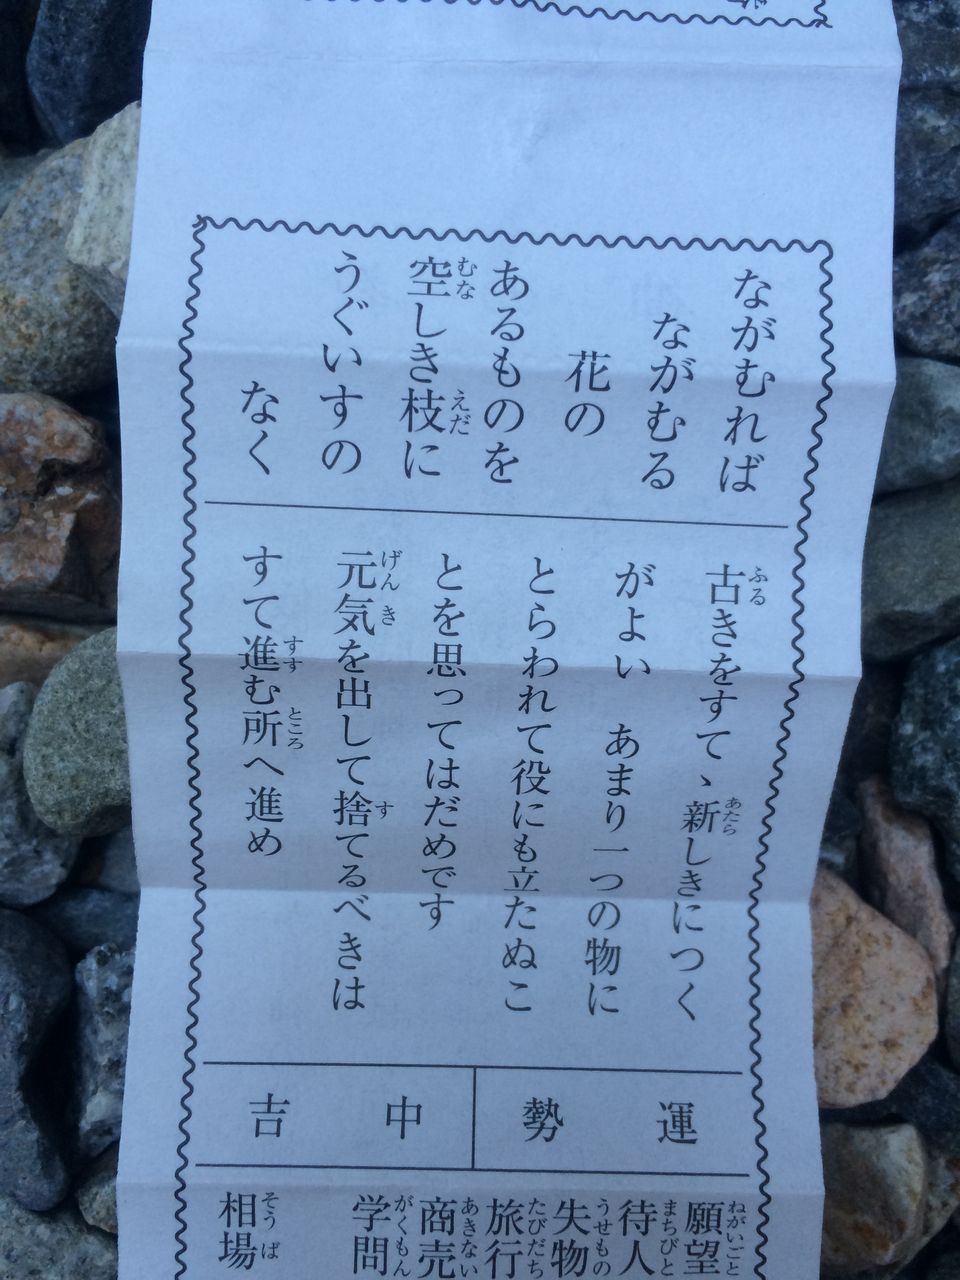 ながむれば
ながむる
花の
あるものを
空しき枝に
うぐいすの
なく
古きをすてゝ新しきにつく
がよい　あまり一つの物に
とらわれて役にも立たぬこ
とを思ってはだめです
元気を出して捨てるべきは
すて進む所へ進め
運勢
中吉
願望
待人
失物
旅行
商売
学問
相場